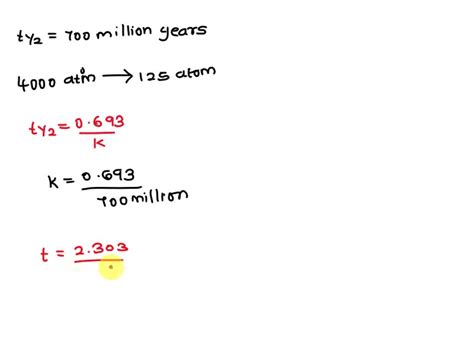 t½ = 700 million years
4000 atom → 125 atom
t½ = 0.693 / K
K = 0.693 / 700 million
t = 2.303